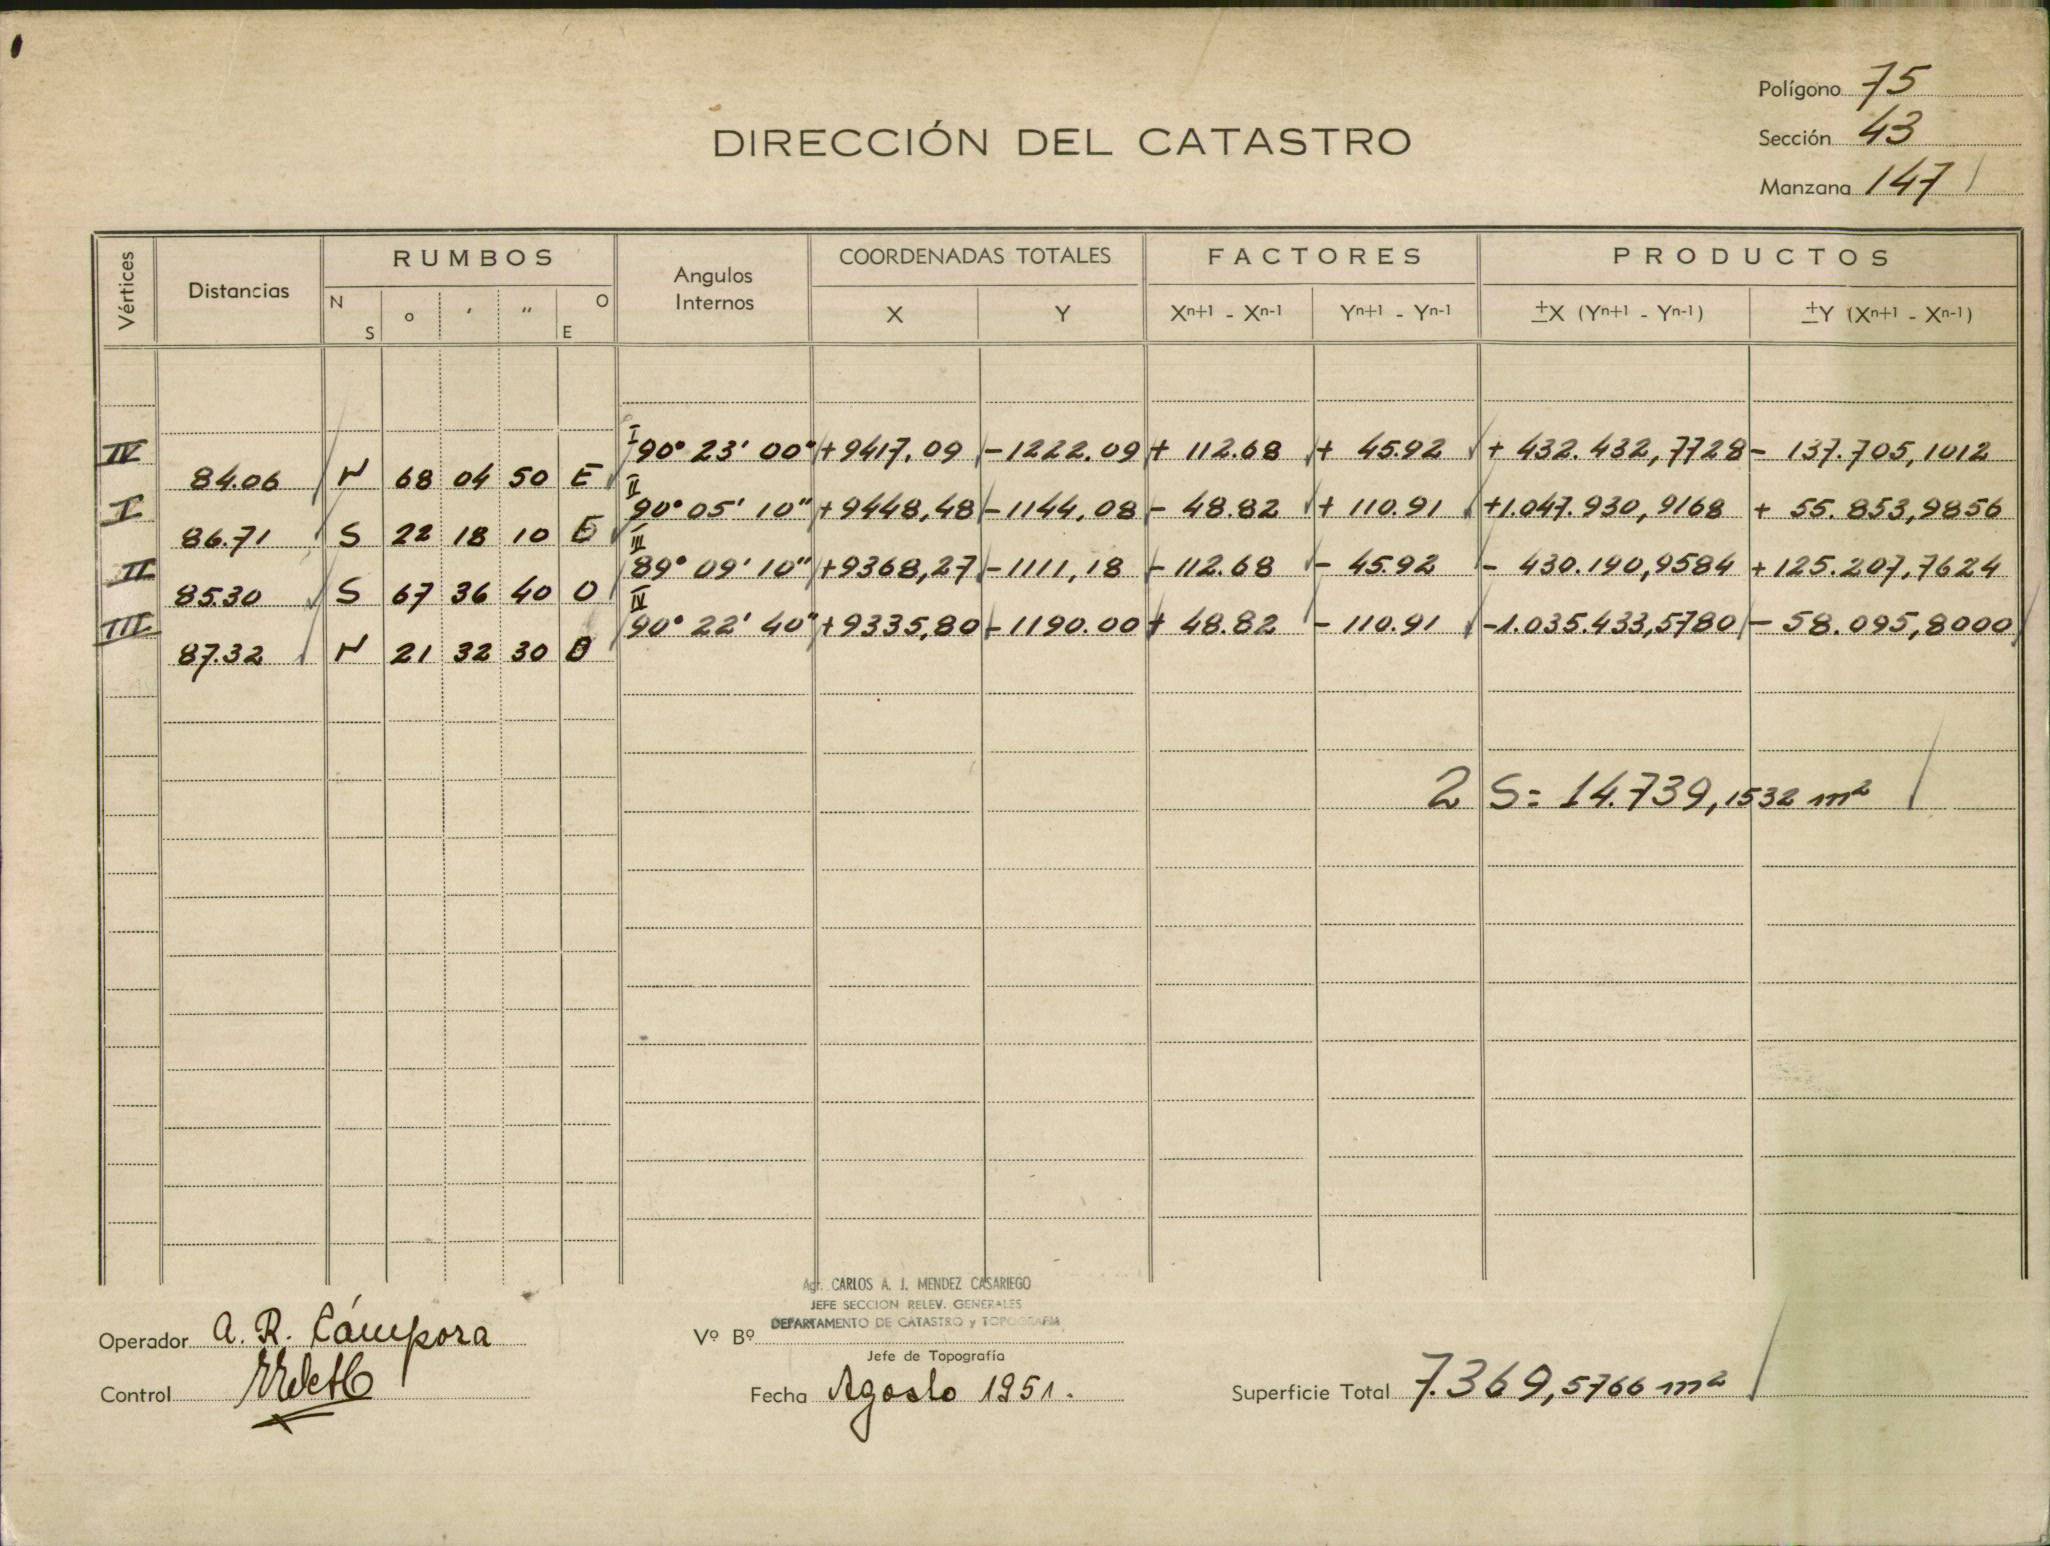 Polígono 75
DIRECCIÓN DEL CATASTRO
Sección 43
Manzana 147
Vértices Distancias RUMBOS Angulos Internos COORDENADAS TOTALES FACTORES PRODUCTOS
N S o ' " O E X Y Xn+1 - Xn-1 Yn+1 - Yn-1 ±X (Yn+1 - Yn-1) ±Y (Xn+1 - Xn-1)
IV I 90° 23' 00" +9417,09 -1222.09 + 112.68 + 45.92 + 432.432,7728 - 137.705,1012
84.06 N 68 04 50 E
I II 90° 05' 10" +9448,48 -1144,08 - 48.82 + 110.91 +1.047.930,9168 + 55.853,9856
86.71 S 22 18 10 E
II III 89° 09' 10" +9368,27 -1111,18 - 112.68 - 45.92 - 430.190,9584 +125.207,7624
85.30 S 67 36 40 O
III IV 90° 22' 40" +9335,80 -1190.00 + 48.82 - 110.91 -1.035.433,5780 - 58.095,8000
87.32 N 21 32 30 O
2 S = 14.739,1532 m²
Agr. CARLOS A. J. MENDEZ CASARIEGO
JEFE SECCION RELEV. GENERALES
DEPARTAMENTO DE CATASTRO y TOPOGRAFIA
Operador A. R. Cámpora
Vº Bº
Jefe de Topografía
Control
Fecha Agosto 1951.
Superficie Total 7.369,5766 m²